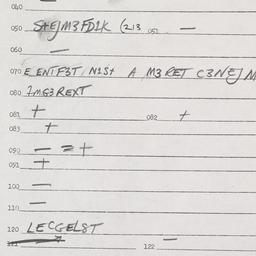 040 —
050 S+EJM3FD1K (213 051 —
060 —
070 E ENTF3T N1St A M3RET C3NEJM
080 1MG3REXT
081 + 082 +
083 +
090 — =+
091 +
100 —
110 —
120 LECGELST
121 122 —